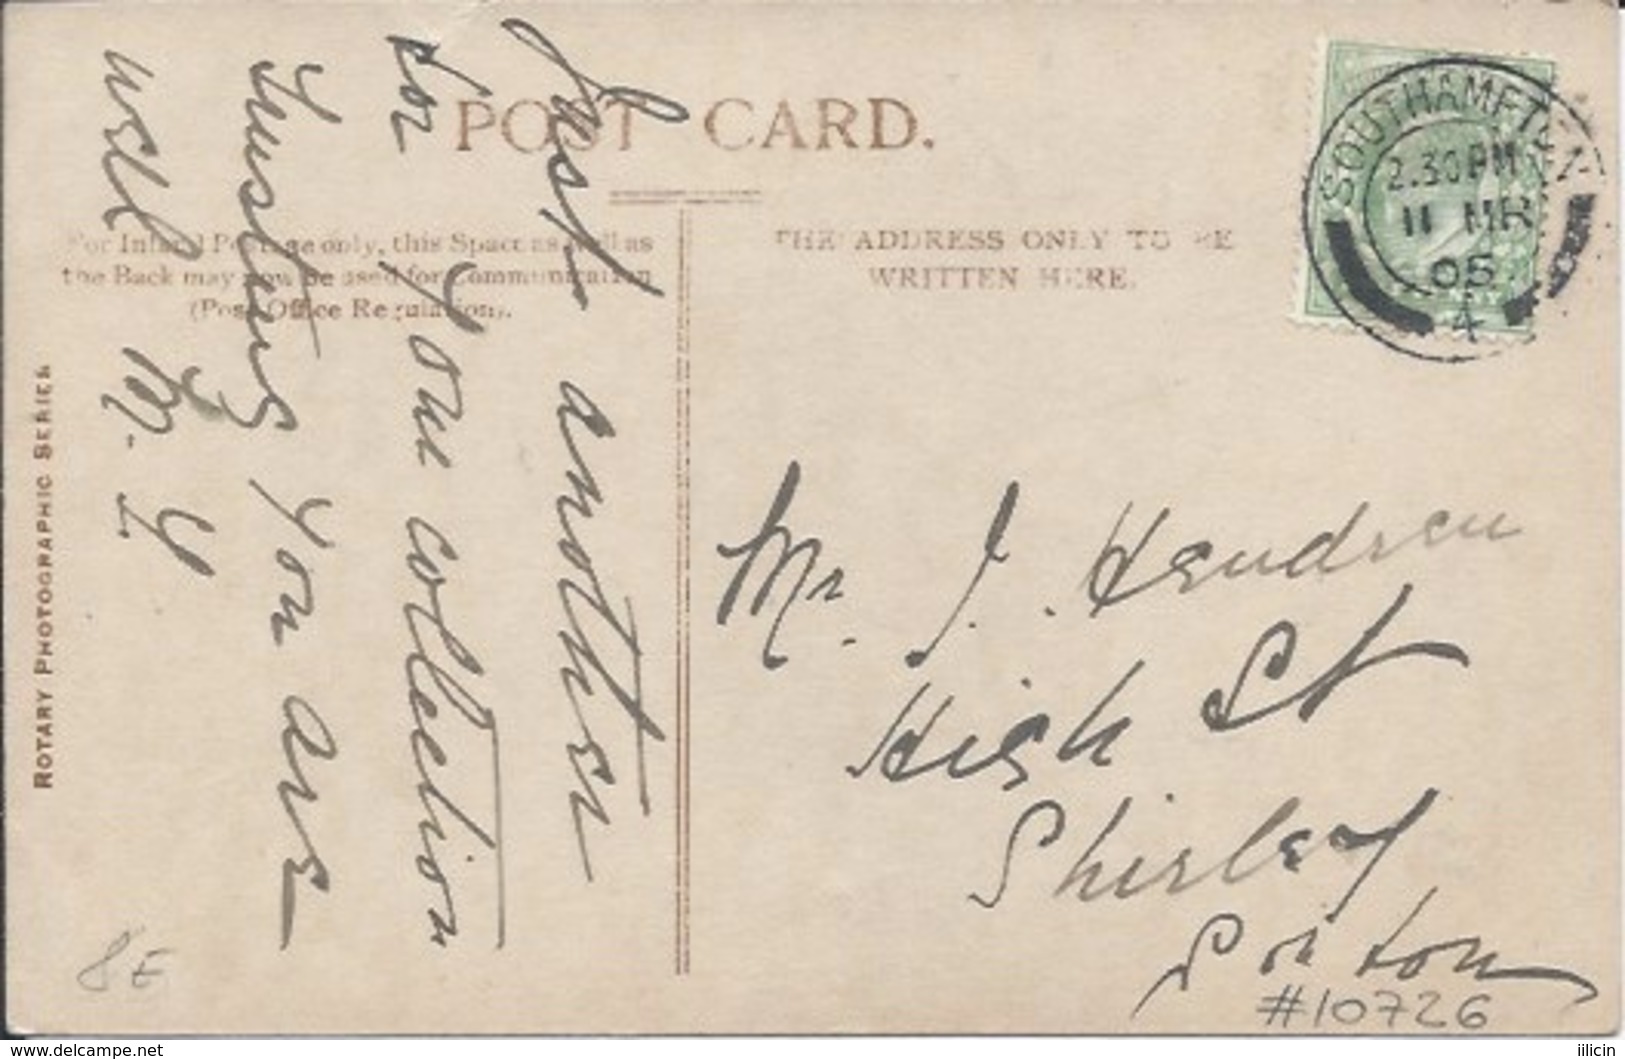 POST CARD.
For Inland Postage only, this Space as well as
the Back may now be used for Communication
(Post Office Regulation).
THE ADDRESS ONLY TO BE
WRITTEN HERE.
SOUTHAMPTON
2.30 PM
11 MR
05
4
ROTARY PHOTOGRAPHIC SERIES
Just another
for your collection
Trusting you are
well
Mr. J. Hendren
High St
Shirley
So'ton
8E
#10726
www.delcampe.net
illicin